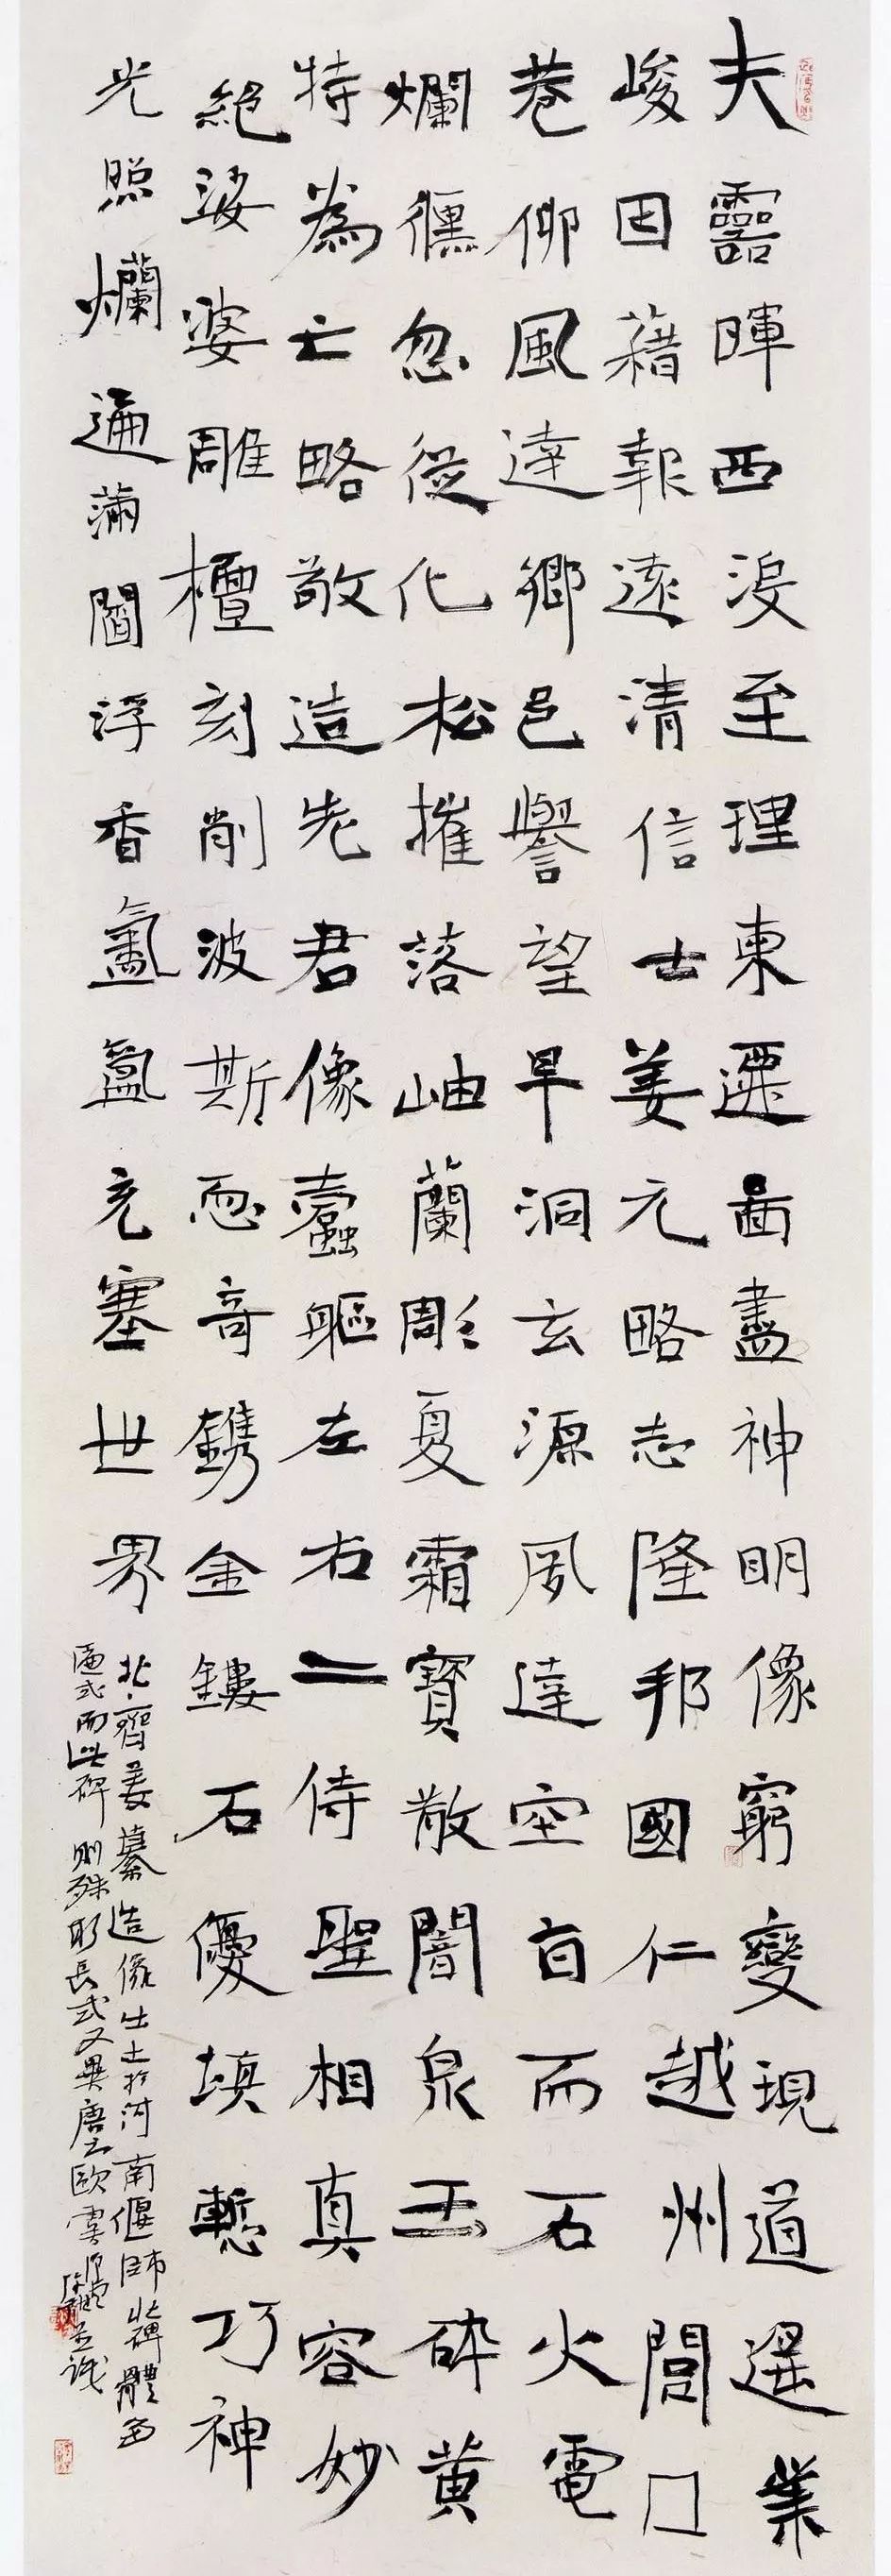 夫靈暉西沒至理東遷啚盡神明像窮變現道選業
峻因藉報遠清信士姜元略志隆邦國仁越州閭口
巷仰風達鄉邑譽望早洞玄源夙達空旨而石火電
爛儵忽從化松摧落岫蘭彫夏霜寶散闇泉玉碎黃
特為亡略敬造先君像靈軀左右二侍聖相真容妙
絕娑婆雕檀刻削波斯恧奇鐫金鏤石優填慙巧神
光照爛遍滿閻浮香氣氳充塞世界
北齊姜纂造像出土於河南偃師北碑體多
匾式而此碑則殊形長式又異唐之歐虞並識